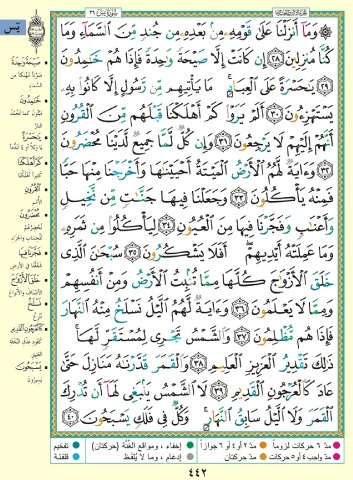 سُورَةُ يسٓ ٣٦
يسٓ
۞ وَمَآ أَنزَلْنَا عَلَىٰ قَوْمِهِۦ مِنۢ بَعْدِهِۦ مِن جُندٍ مِّنَ ٱلسَّمَآءِ وَمَا
كُنَّا مُنزِلِينَ ٢٨ إِن كَانَتْ إِلَّا صَيْحَةً وَٰحِدَةً فَإِذَا هُمْ خَٰمِدُونَ
٢٩ يَٰحَسْرَةً عَلَى ٱلْعِبَادِ ۚ مَا يَأْتِيهِم مِّن رَّسُولٍ إِلَّا كَانُوا۟ بِهِۦ
يَسْتَهْزِءُونَ ٣٠ أَلَمْ يَرَوْا۟ كَمْ أَهْلَكْنَا قَبْلَهُم مِّنَ ٱلْقُرُونِ
أَنَّهُمْ إِلَيْهِمْ لَا يَرْجِعُونَ ٣١ وَإِن كُلٌّ لَّمَّا جَمِيعٌ لَّدَيْنَا مُحْضَرُونَ
٣٢ وَءَايَةٌ لَّهُمُ ٱلْأَرْضُ ٱلْمَيْتَةُ أَحْيَيْنَٰهَا وَأَخْرَجْنَا مِنْهَا حَبًّا
فَمِنْهُ يَأْكُلُونَ ٣٣ وَجَعَلْنَا فِيهَا جَنَّٰتٍ مِّن نَّخِيلٍ
وَأَعْنَٰبٍ وَفَجَّرْنَا فِيهَا مِنَ ٱلْعُيُونِ ٣٤ لِيَأْكُلُوا۟ مِن ثَمَرِهِۦ
وَمَا عَمِلَتْهُ أَيْدِيهِمْ ۖ أَفَلَا يَشْكُرُونَ ٣٥ سُبْحَٰنَ ٱلَّذِى
خَلَقَ ٱلْأَزْوَٰجَ كُلَّهَا مِمَّا تُنۢبِتُ ٱلْأَرْضُ وَمِنْ أَنفُسِهِمْ
وَمِمَّا لَا يَعْلَمُونَ ٣٦ وَءَايَةٌ لَّهُمُ ٱلَّيْلُ نَسْلَخُ مِنْهُ ٱلنَّهَارَ
فَإِذَا هُم مُّظْلِمُونَ ٣٧ وَٱلشَّمْسُ تَجْرِى لِمُسْتَقَرٍّ لَّهَا ۚ
ذَٰلِكَ تَقْدِيرُ ٱلْعَزِيزِ ٱلْعَلِيمِ ٣٨ وَٱلْقَمَرَ قَدَّرْنَٰهُ مَنَازِلَ حَتَّىٰ
عَادَ كَٱلْعُرْجُونِ ٱلْقَدِيمِ ٣٩ لَا ٱلشَّمْسُ يَنۢبَغِى لَهَآ أَن تُدْرِكَ
ٱلْقَمَرَ وَلَا ٱلَّيْلُ سَابِقُ ٱلنَّهَارِ ۚ وَكُلٌّ فِى فَلَكٍ يَسْبَحُونَ ٤٠
صَيْحَةً وَٰحِدَةً
خَٰمِدُونَ
يَٰحَسْرَةً
كَمْ أَهْلَكْنَا
ٱلْقُرُونِ
مُحْضَرُونَ
فَجَّرْنَا فِيهَا
خَلَقَ ٱلْأَزْوَٰجَ
نَسْلَخُ
كَٱلْعُرْجُونِ ٱلْقَدِيمِ
يَسْبَحُونَ
مدّ ٦ حركات لزوماً
مدّ ٢ أو ٤ أو ٦ جوازاً
إخفاء، ومواقع الغُنَّة (حركتان)
تفخيم
مدّ واجب ٤ أو ٥ حركات
مدّ حركتان
إدغام، وما لا يُلفَظ
قلقلة
٤٤٢